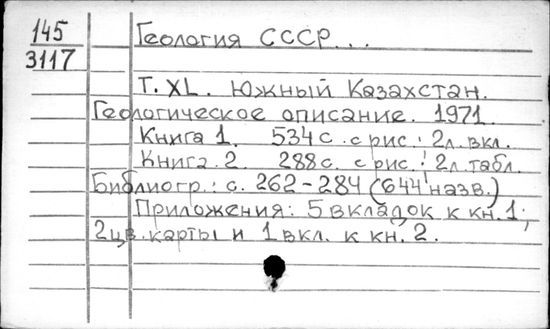 145
3117
Геология СССР...
Т. XL. Южный Казахстан.
Геологическое описание. 1971.
Книга 1. 534 с. с рис.; 2 л. вкл.
Книга 2. 288 с. с рис.; 2 л. табл.
Библиогр.: с. 262-284 (644 назв.)
Приложения: 5 вкладок к кн. 1;
2 цв. карты и 1 вкл. к кн. 2.